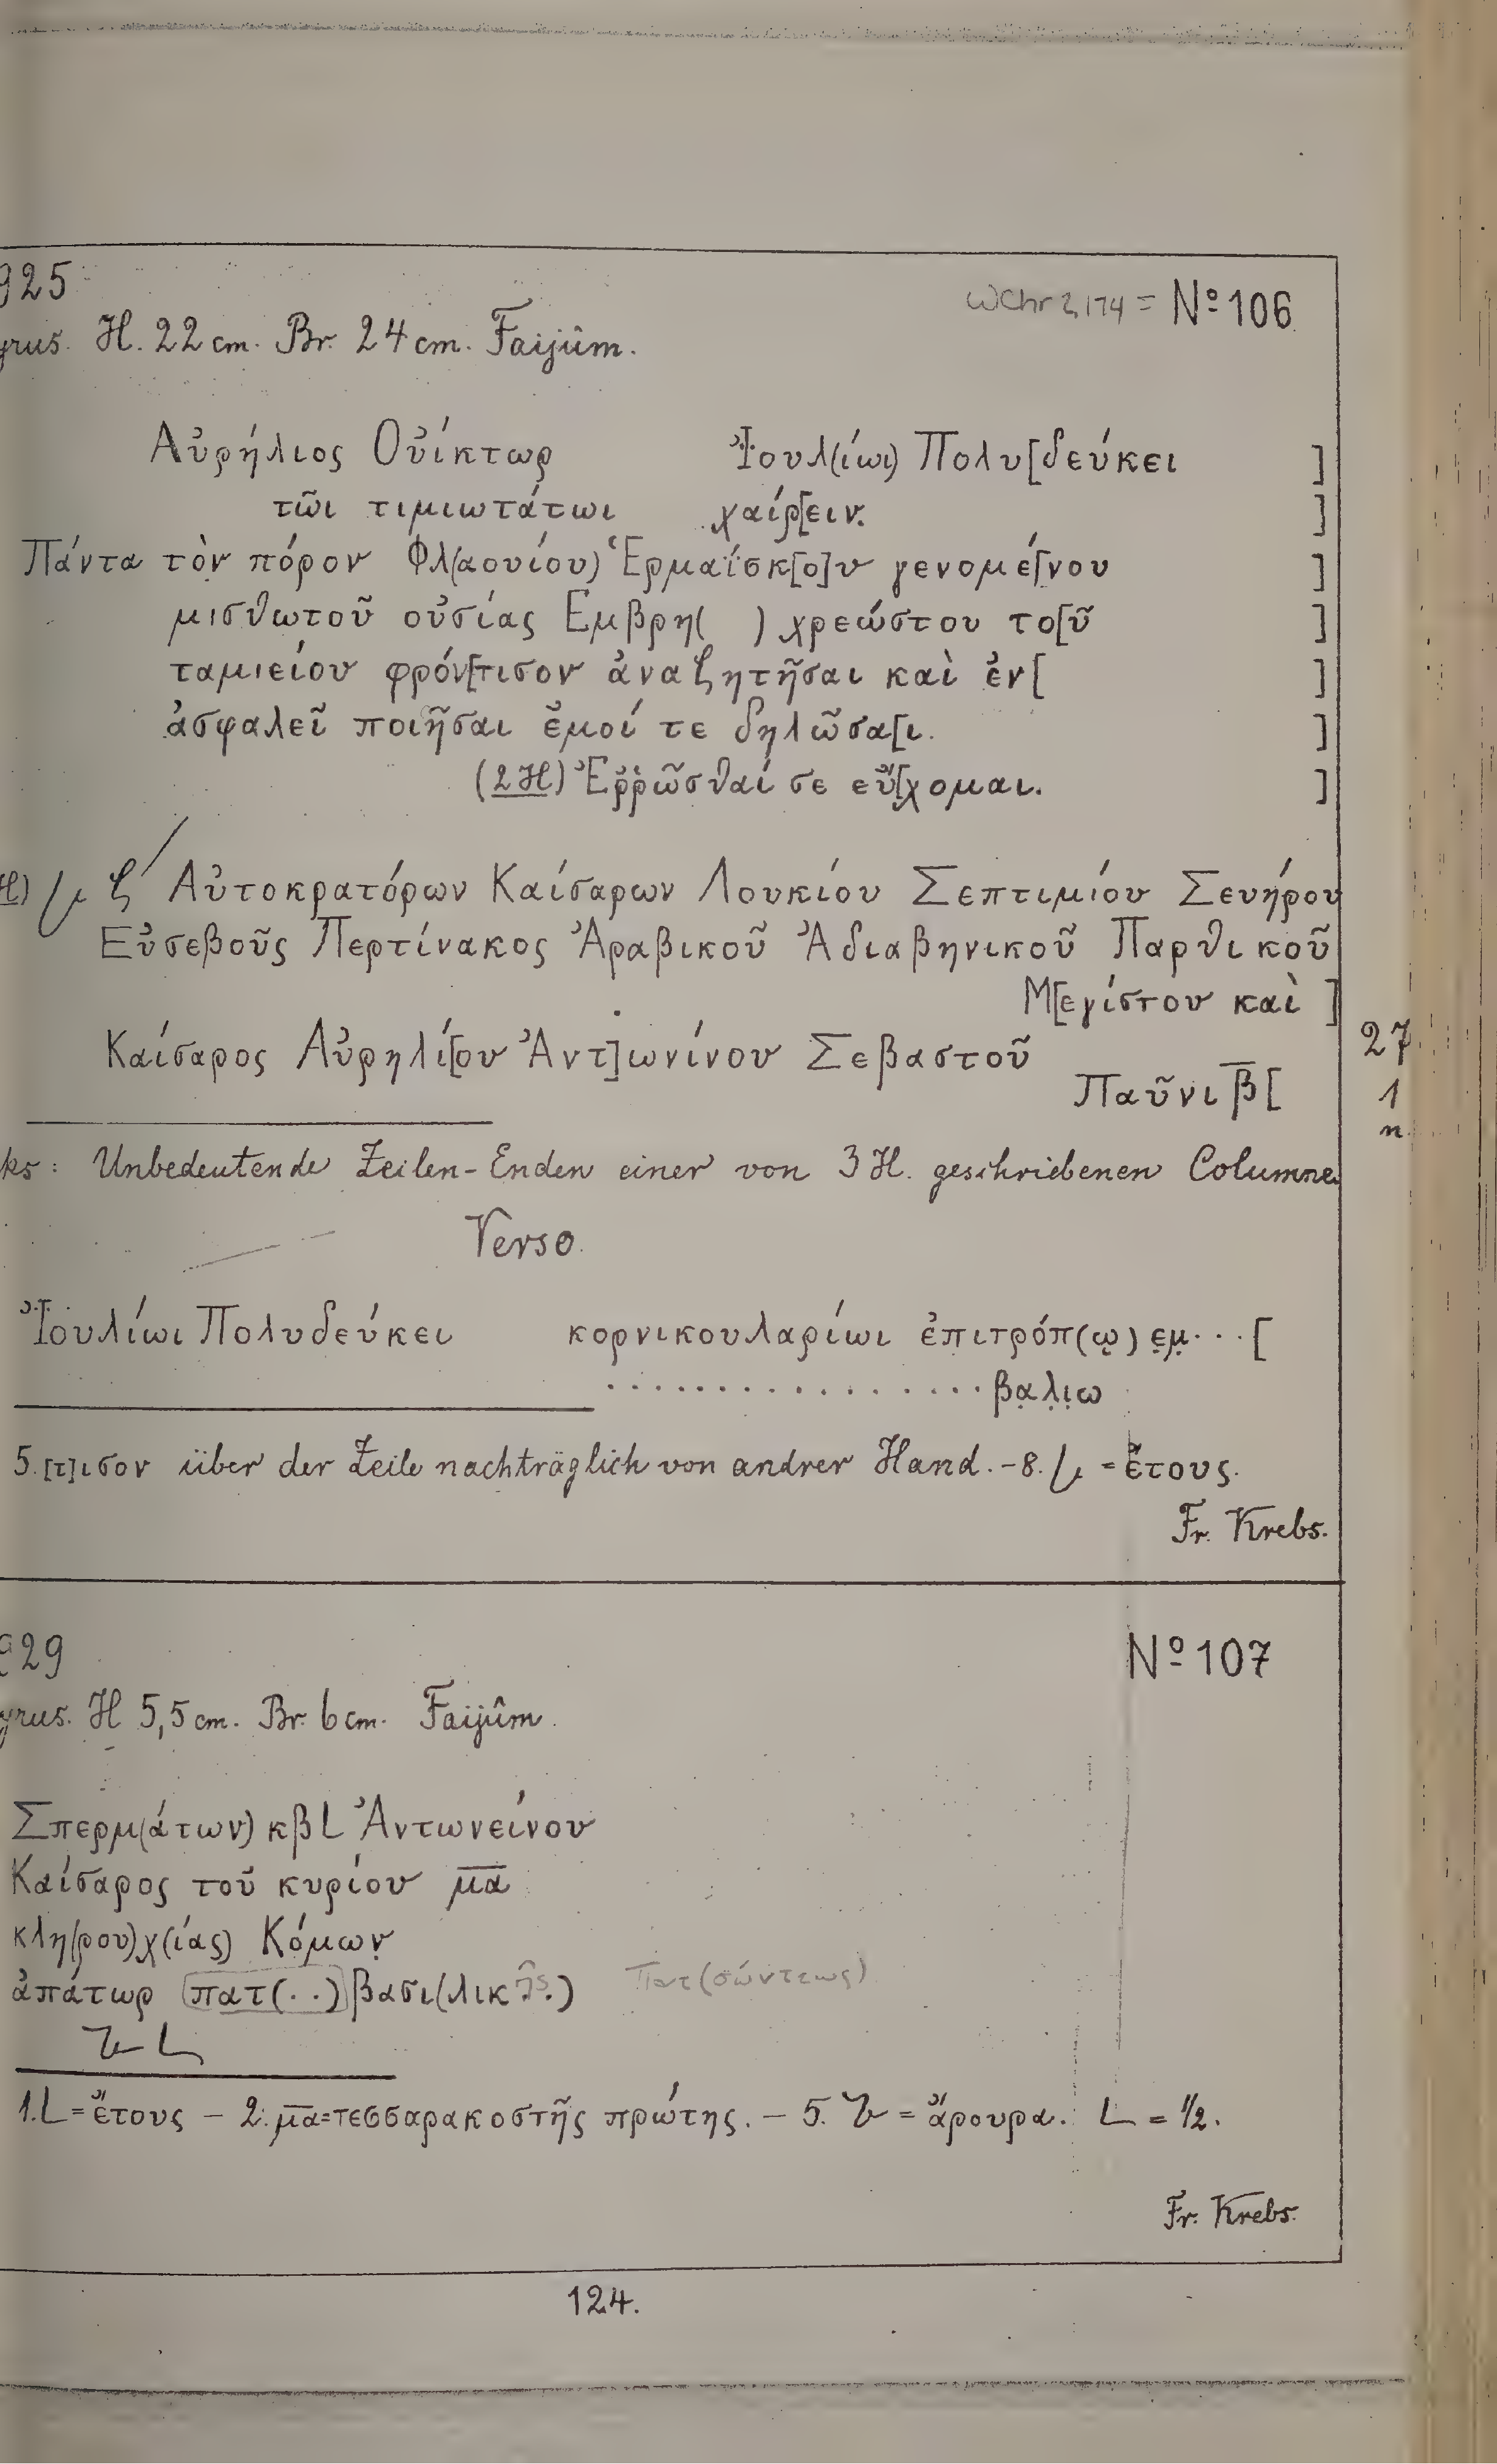 925
WChr 2,174 = Nº 106
yrus. H. 22 cm. Br. 24 cm. Faijûm.
Αὐρήλιος Οὐίκτωρ Ἰουλ(ίωι) Πολυ[δεύκει ]
τῶι τιμιωτάτωι χαίρ[ειν. ]
Πάντα τὸν πόρον Φλ(αουίου) Ἑρμαΐσκ[ο]υ γενομέ[νου ]
μισθωτοῦ οὐσίας Εμβρη( ) χρεώστου το[ῦ ]
ταμιείου φρόν[τισον ἀναζητῆσαι καὶ ἐν[ ]
ἀσφαλεῖ ποιῆσαι ἐμοί τε δηλῶσα[ι. ]
(2 H) Ἐῤῥῶσθαί σε εὔ[χομαι. ]
H) ζ Αὐτοκρατόρων Καίσαρων Λουκίου Σεπτιμίου Σευήρου
Εὐσεβοῦς Περτίνακος Ἀραβικοῦ Ἀδιαβηνικοῦ Παρθικοῦ
Μ[εγίστου καὶ ]
Καίσαρος Αὐρηλί[ου Ἀντ]ωνίνου Σεβαστοῦ
27
Παῦνι β̅ [
1
n
ks: Unbedeutende Zeilen-Enden einer von 3 H. geschriebenen Columne
Verso.
Ἰουλίωι Πολυδεύκει κορνικουλαρίωι ἐπιτρόπ(ῳ) ε̣μ̣ . . . [
. . . . . . . . . . . . . . . . . βα̣λ̣ι̣ω
5. [τ]ισον über der Zeile nachträglich von andrer Hand. – 8. = ἔτους.
Fr. Krebs.
929
Nº 107
yrus. H 5,5 cm. Br. 6 cm. Faijûm.
Σπερμ(άτων) κβ L Ἀντωνείνου
Καίσαρος τοῦ κυρίου μ̅α̅
κλη(ρου)χ(ίας) Κόμων̣
ἀπάτωρ πατ(. .) βασι(λικῆς.) Πατ(σώντεως)
1. L = ἔτους – 2. μ̅α̅ = τεσσαρακοστῆς πρώτης. – 5. = ἄρουρα. L = 1/2.
Fr. Krebs.
124.